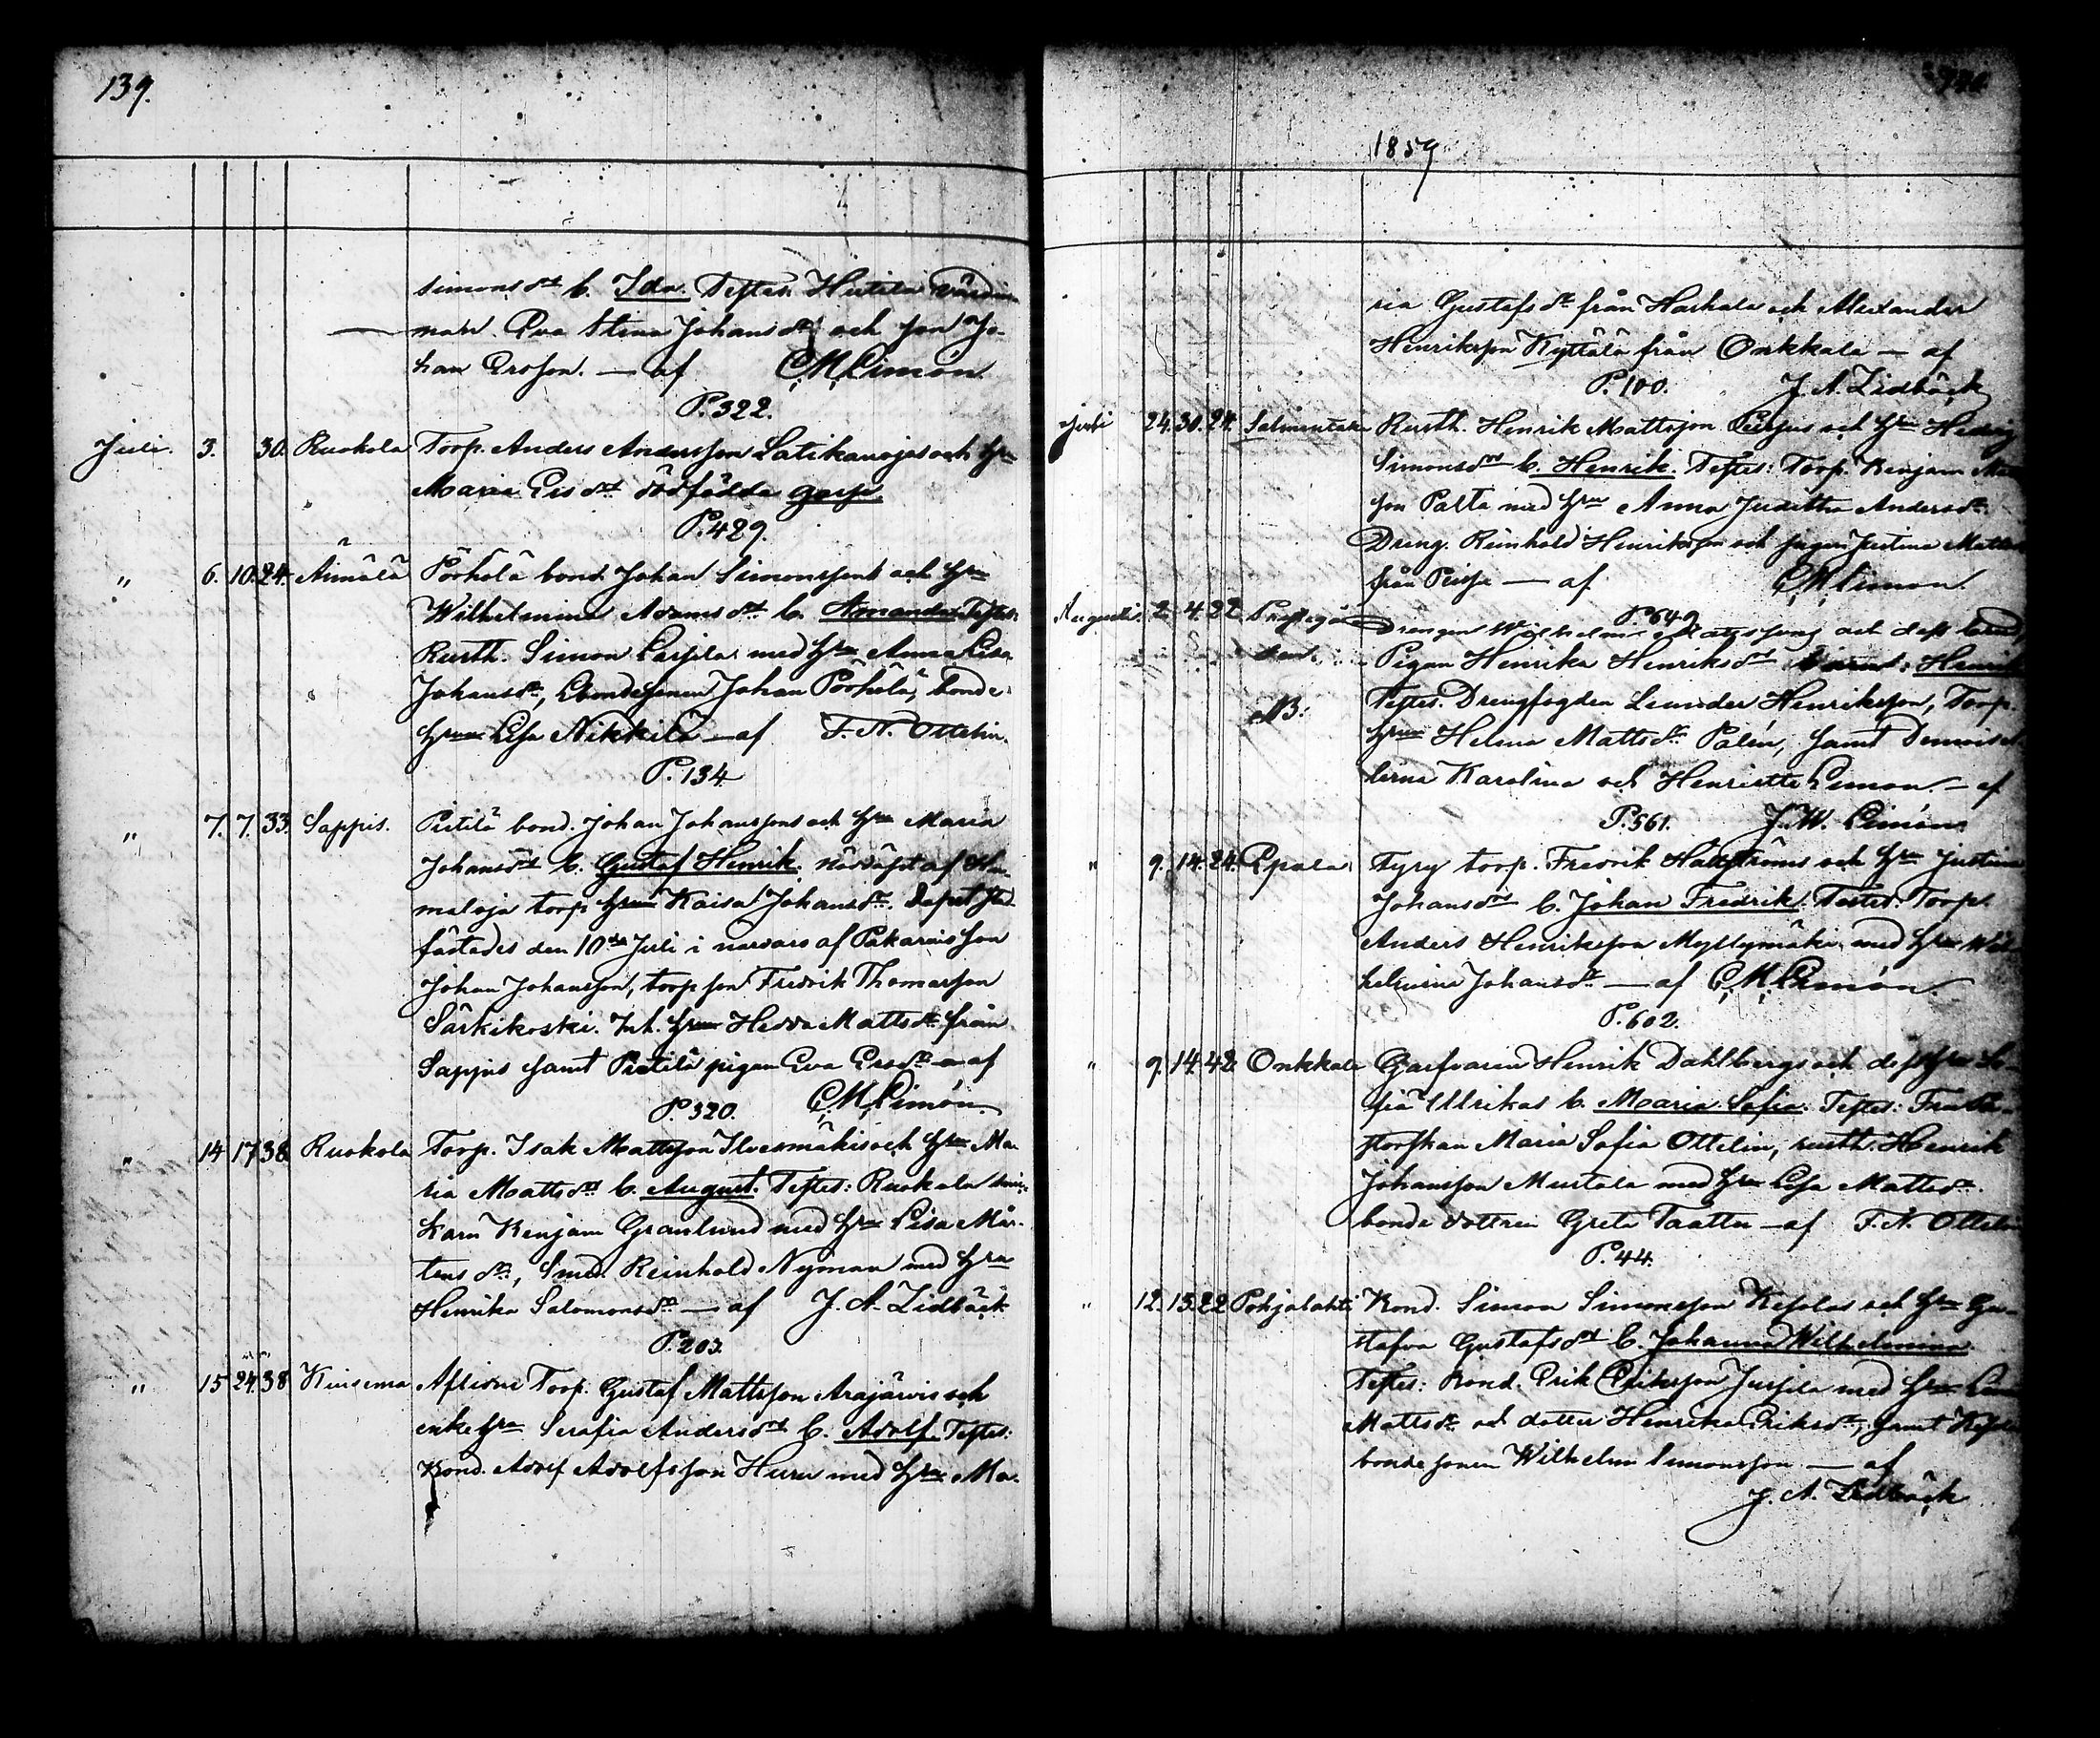 139.
simonsdr b. Ida. Testes. Hietila
Eva Stina Johansdr och son Jo-
han Ersson. — af C.M. Limón.
P. 322.
Juli. 3. 30. Ruokola Torp. Anders Andersson Latikanojas och hru
Maria Ersdrs dödfödda gosse.
P. 429.
" 6. 10. 24. Ännälä Pörhölä bond. Johan Simonssons och hru
Wilhelmina Adamsdrs b. Amanda. Testes:
Rusth. Simon med hru Anna Lisa
Johansdr, bondesonen Johan Pörhölä, bonde
hrun Lisa Nikkilä — af F. N. Ottelin.
P. 134
" 7. 7. 33. Sappis. Pietilä bond. Johan Johanssons och hru Maria
Johansdrs b. Gustaf Henrik. nöddöpt af
maloja torp. hrun Kaisa Johansdr. Dopet stad-
fästades den 10de Juli i närvaro af Pakarais son
Johan Johansson, torp son Fredrik Thomasson
Särkikoski. Inh. hrun Hedda Mattsdr från
Sappis samt Pietilä pigan Eva Ersdr — af
P. 320. C.M. Limón
" 14 17 38 Ruokola Torp. Isak Mattsson Ilvesmäkis och hru Ma-
ria Mattsdrs b. August. Testes: Ruokola
karn Benjam. Granlund med hru Lisa Mår-
tensdr, Smed. Reinhold Nyman med hru
Henrika Salomonsdr — af J. A. Lidbäck
P. 203.
" 15 24. 38 Kiusema Aflidne Torp. Gustaf Mattsson Arajärvis och
enkehru Serafia Andersdrs b. Adolf. Testes:
Bond. Adolf Adolfsson Huru med hru Ma-
1859
ria Gustafsdr från Harhala och Alexander
Henriksson Kyttälä från Onkkala — af
P. 100. J. A. Lidbäck
Juli 24. 30. 24. Salmentaka Rusth. Henrik Mattsson och hru Hedvig
Simonsdrs b. Henrik. Testes: Torp. Benjam
son Palta med hru Anna Juditha Andersdr.
Dreng. Reinhold Henriksson och pigan Justina
från — af C.M. Limon.
P. 649
Augusti. 2. 4. 22. Prestgår- Drengen Wilhelm och dess
den. Pigan Henrika Henriksdrs Henrik
NB: Testes. Drengfogden Leander Henriksson, Torp.
hrun Helena Mattsdr Palén, samt Demoisel-
lerna Karolina och Henriette Limon. — af
P. 561. J. W. Limón
" 9. 14. 24. Epala. Tyry torp. Fredrik och hru Justina
Johansdrs b. Johan Fredrik. Testes: Torp.
Anders Henriksson Myllymäki med hru Wil-
helmina Johansdr — af C.M. Limón
P. 602.
" 9. 14. 42 Onkkala Garfvaren Henrik Dahlbergs och dess hru So-
fia Ulrikas b. Maria Sofia. Testes: Fru Pa-
storskan Maria Sofia Ottelin, rusth. Henrik
Johansson Mustala med hru Lisa Mattsdr.
bonde dottren Greta Taatta — af F. N. Ottelin
P. 44.
" 12. 15. 22 Pohjalahti Bond. Simon Simonsson Kesolas och hru Gu-
stafva Gustafsdrs b. Johanna Wilhelmina.
Testes: Bond. Erik Eriksson Jussila med hru
Mattsdr och dotter Henrika Eriksdr, samt
bondesonen Wilhelm Simonsson — af
J. A. Lidbäck